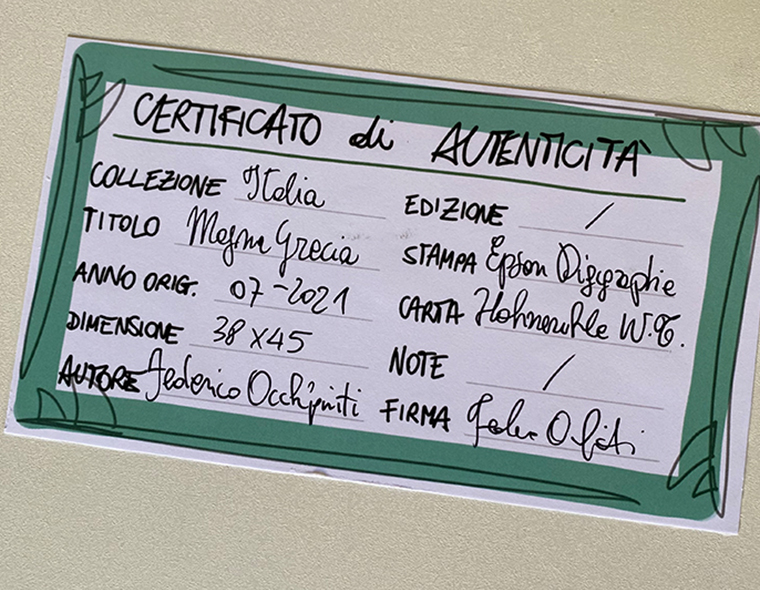 CERTIFICATO di AUTENTICITÀ
COLLEZIONE Italia
TITOLO Magna Grecia
ANNO ORIG. 07-2021
DIMENSIONE 38x45
AUTORE Federico Occhipinti
EDIZIONE /
STAMPA Epson Digigraphie
CARTA Hahnemuhle W.T.
NOTE /
FIRMA